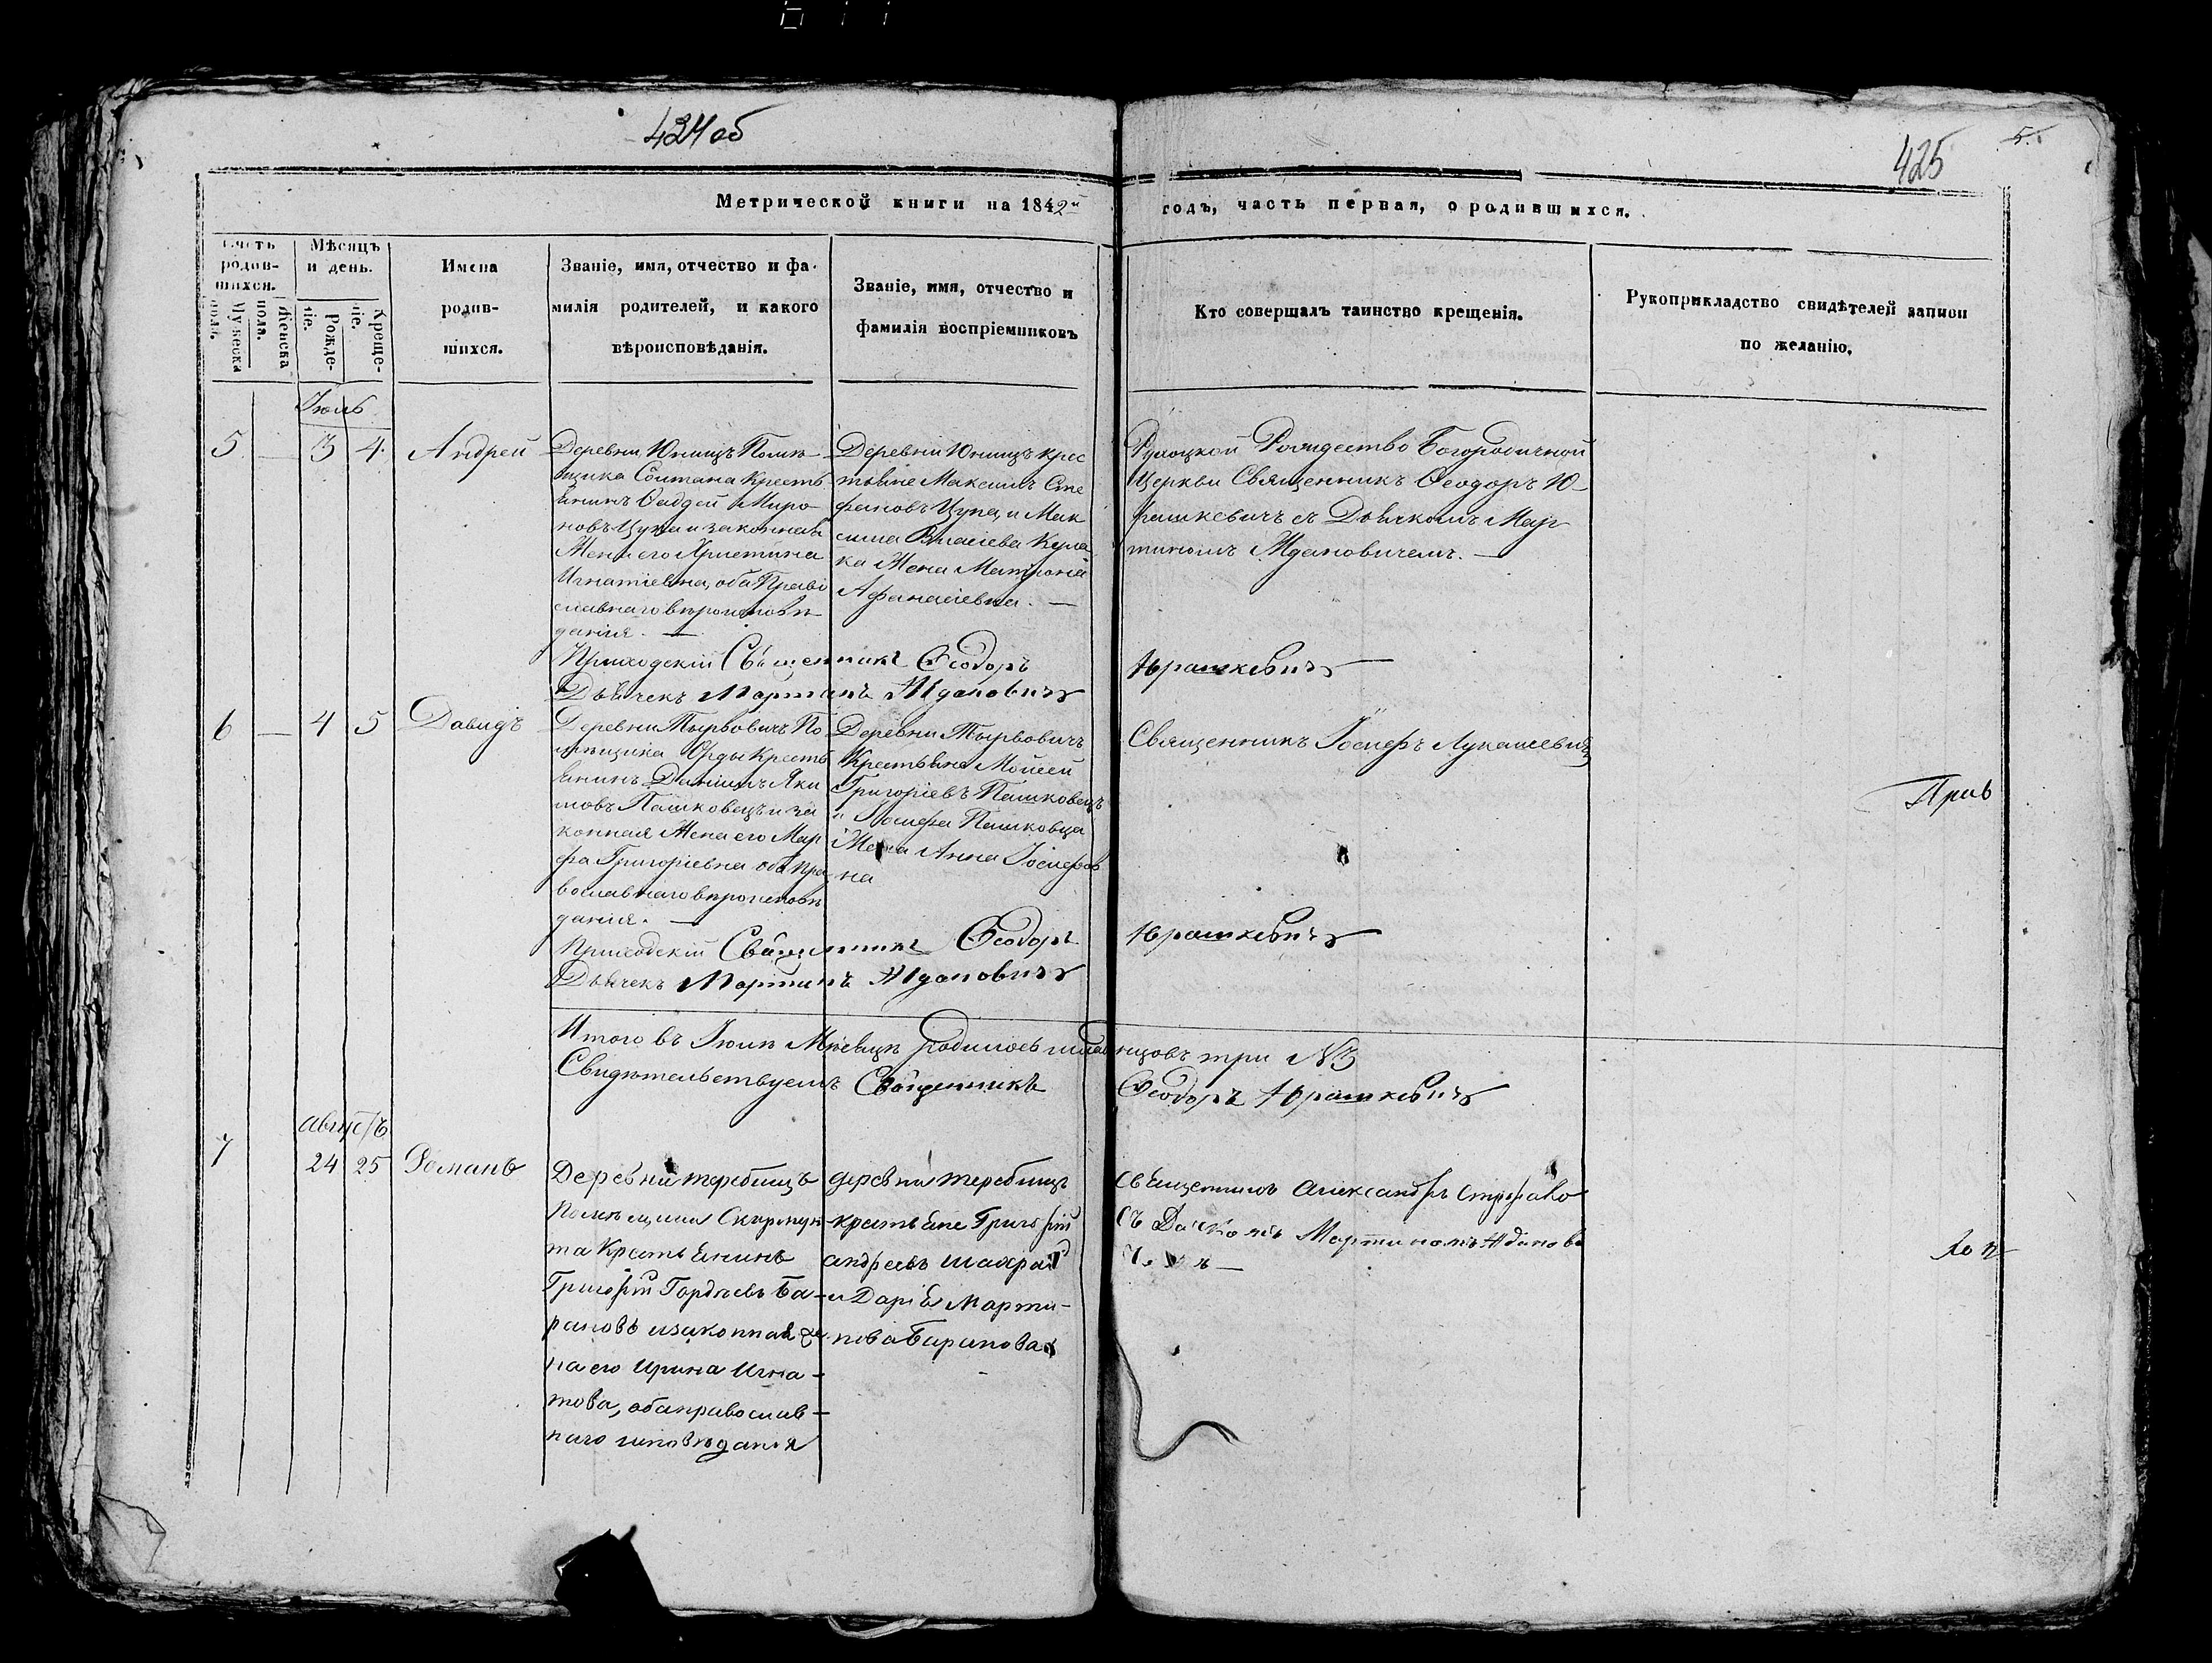 424 об
425
5.
Метрической книги на 1842й годъ, часть первая, о родившихся.
Счетъ родив-
шихся.
Мужеска
пола.
Женска
пола.
Мѣсяцъ
и день.
Рожде-
ніе.
Креще-
ніе.
Имена
родив-
шихся.
Званіе, имя, отчество и фа-
милія родителей, и какого
вѣроисповѣданія.
Званіе, имя, отчество и
фамилія воспріемниковъ
Кто совершалъ таинство крещенія.
Рукоприкладство свидѣтелей записи
по желанію.
Іюль
5 — 3 4. Андрей
Деревни Юнищъ Помѣ-
щика Солтана Кресть-
янинъ Фаддей Миро-
новъ Цупа и законная
Жена его Христина
Игнатіевна, оба Право
славнаго вѣроисповѣ-
данія. —
Деревни Юнищъ крес
тьяне Максимъ Сте
фановъ Цупа, и Мак
сима Власіева Кула
ка Жена Матрона
Афанасіевна. —
Рождество Богородичной
Церкви Священникъ Феодоръ Ю-
рашкевичъ съ Дьячкомъ Мар-
тиномъ Ждановичемъ. —
Приходскій Священникъ Феодоръ Юрашкевичъ —
Дьячекъ Мартинъ Ждановичъ
6 — 4 5 Давидъ
Деревни Тырвовичъ По
мѣщика Орды Кресть
янинъ Даніилъ Яки
мовъ Пашковецъ и за
конная Жена его Мар
фа Григоріевна оба пра
вославнаго вѣроисповѣ
данія. —
Деревни Тырвовичъ
Крестьяне Моисей
Григоріевъ Пашковецъ
и Іосифа Пашковца
Жена Анна Іосифов
на
Священникъ Іосифъ Лукашевичъ
Прав
Приходскій Священникъ Феодоръ Юрашкевичъ
Дьячекъ Мартинъ Ждановичъ
Итого въ Іюлѣ Мѣсяцѣ родилось младенцовъ три №3
Свидѣтельствуемъ Священникъ Феодоръ Юрашкевичъ
августъ
7 24 25 Романъ
Деревни теребищъ
Помѣщика Скирмун-
та Крестьянинъ
Григорій Гордѣевъ Ба-
рановъ изаконная же
на его Ирина Игна-
това, оба православ-
наго исповѣданія
деревни теребищъ
крестьяне Григорій
андреевъ
и Дарія Марти-
нова Баранова
Священникъ Александръ
съ Дьячкомъ Мартиномъ Жданови